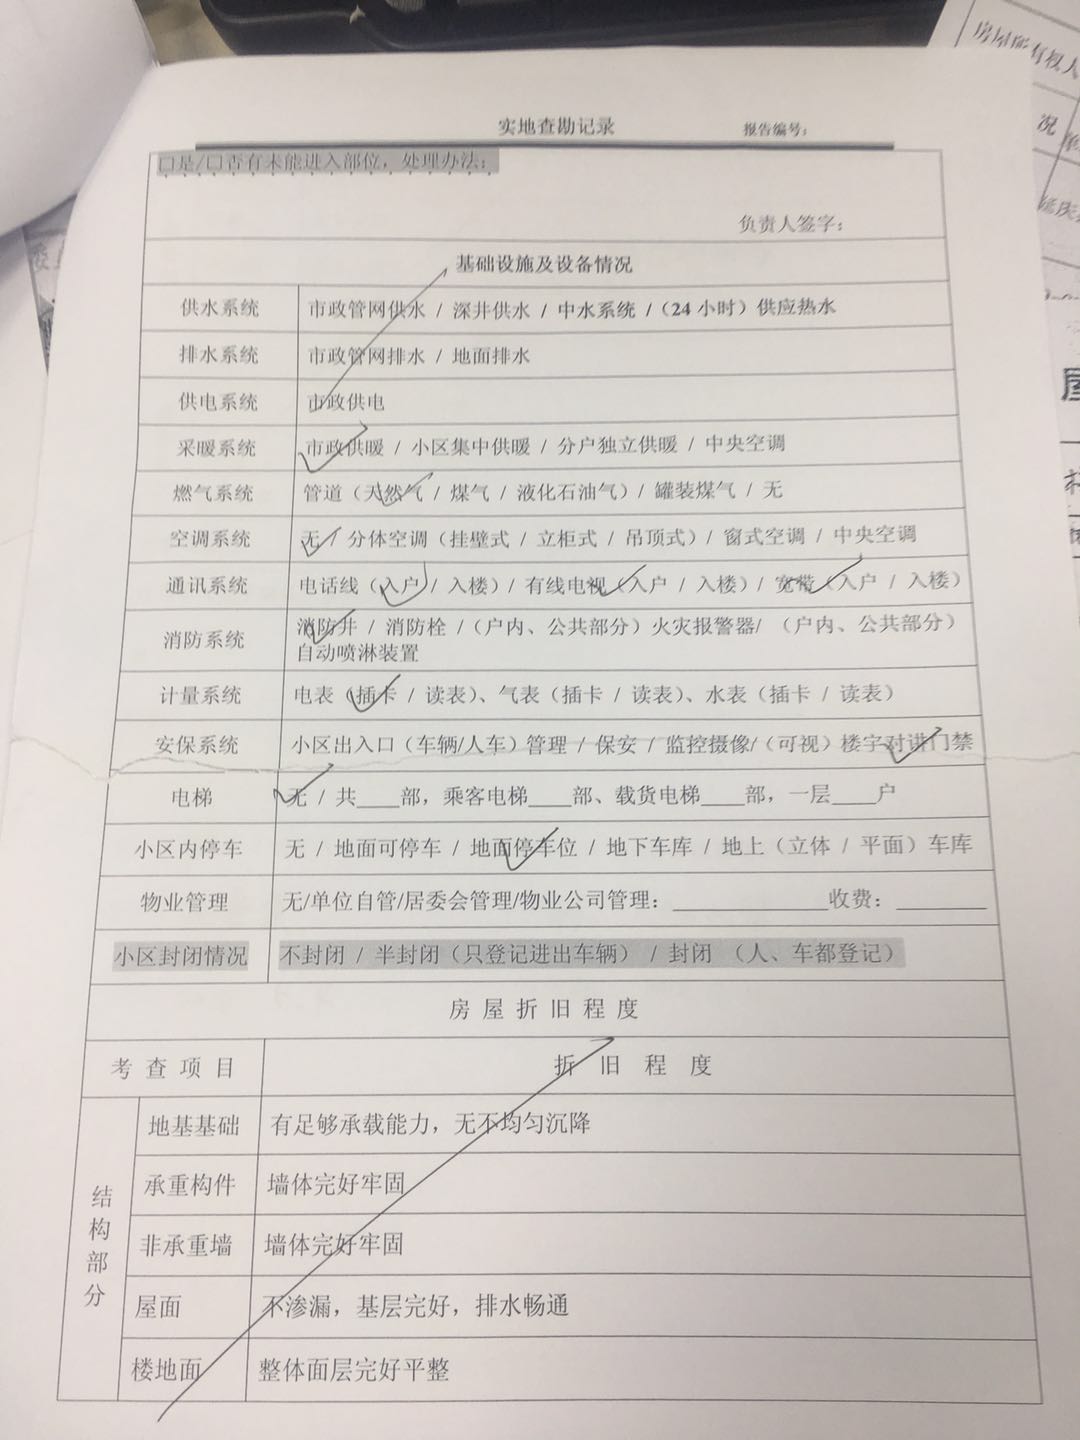 房屋所有权人
况
实地查勘记录 报告编号:
□是/□否有未能进入部位，处理办法:
负责人签字:
基础设施及设备情况
供水系统 市政管网供水 / 深井供水 / 中水系统 /（24 小时）供应热水
排水系统 市政管网排水 / 地面排水
供电系统 市政供电
采暖系统 市政供暖 / 小区集中供暖 / 分户独立供暖 / 中央空调
燃气系统 管道（天然气 / 煤气 / 液化石油气）/ 罐装煤气 / 无
空调系统 无 / 分体空调（挂壁式 / 立柜式 / 吊顶式）/ 窗式空调 / 中央空调
通讯系统 电话线（入户 / 入楼）/ 有线电视（入户 / 入楼）/ 宽带（入户 / 入楼）
消防系统 消防井 / 消防栓 /（户内、公共部分）火灾报警器/ （户内、公共部分）
自动喷淋装置
计量系统 电表（插卡 / 读表）、气表（插卡 / 读表）、水表（插卡 / 读表）
安保系统 小区出入口（车辆/人车）管理 / 保安 / 监控摄像/（可视）楼宇对讲门禁
电梯 无 / 共____部，乘客电梯____部、载货电梯____部，一层____户
小区内停车 无 / 地面可停车 / 地面停车位 / 地下车库 / 地上（立体 / 平面）车库
物业管理 无/单位自管/居委会管理/物业公司管理：______________收费：________
小区封闭情况 不封闭 / 半封闭（只登记进出车辆） / 封闭 （人、车都登记）
房 屋 折 旧 程 度
考 查 项 目 折 旧 程 度
结构部分
地基基础 有足够承载能力，无不均匀沉降
承重构件 墙体完好牢固
非承重墙 墙体完好牢固
屋面 不渗漏，基层完好，排水畅通
楼地面 整体面层完好平整